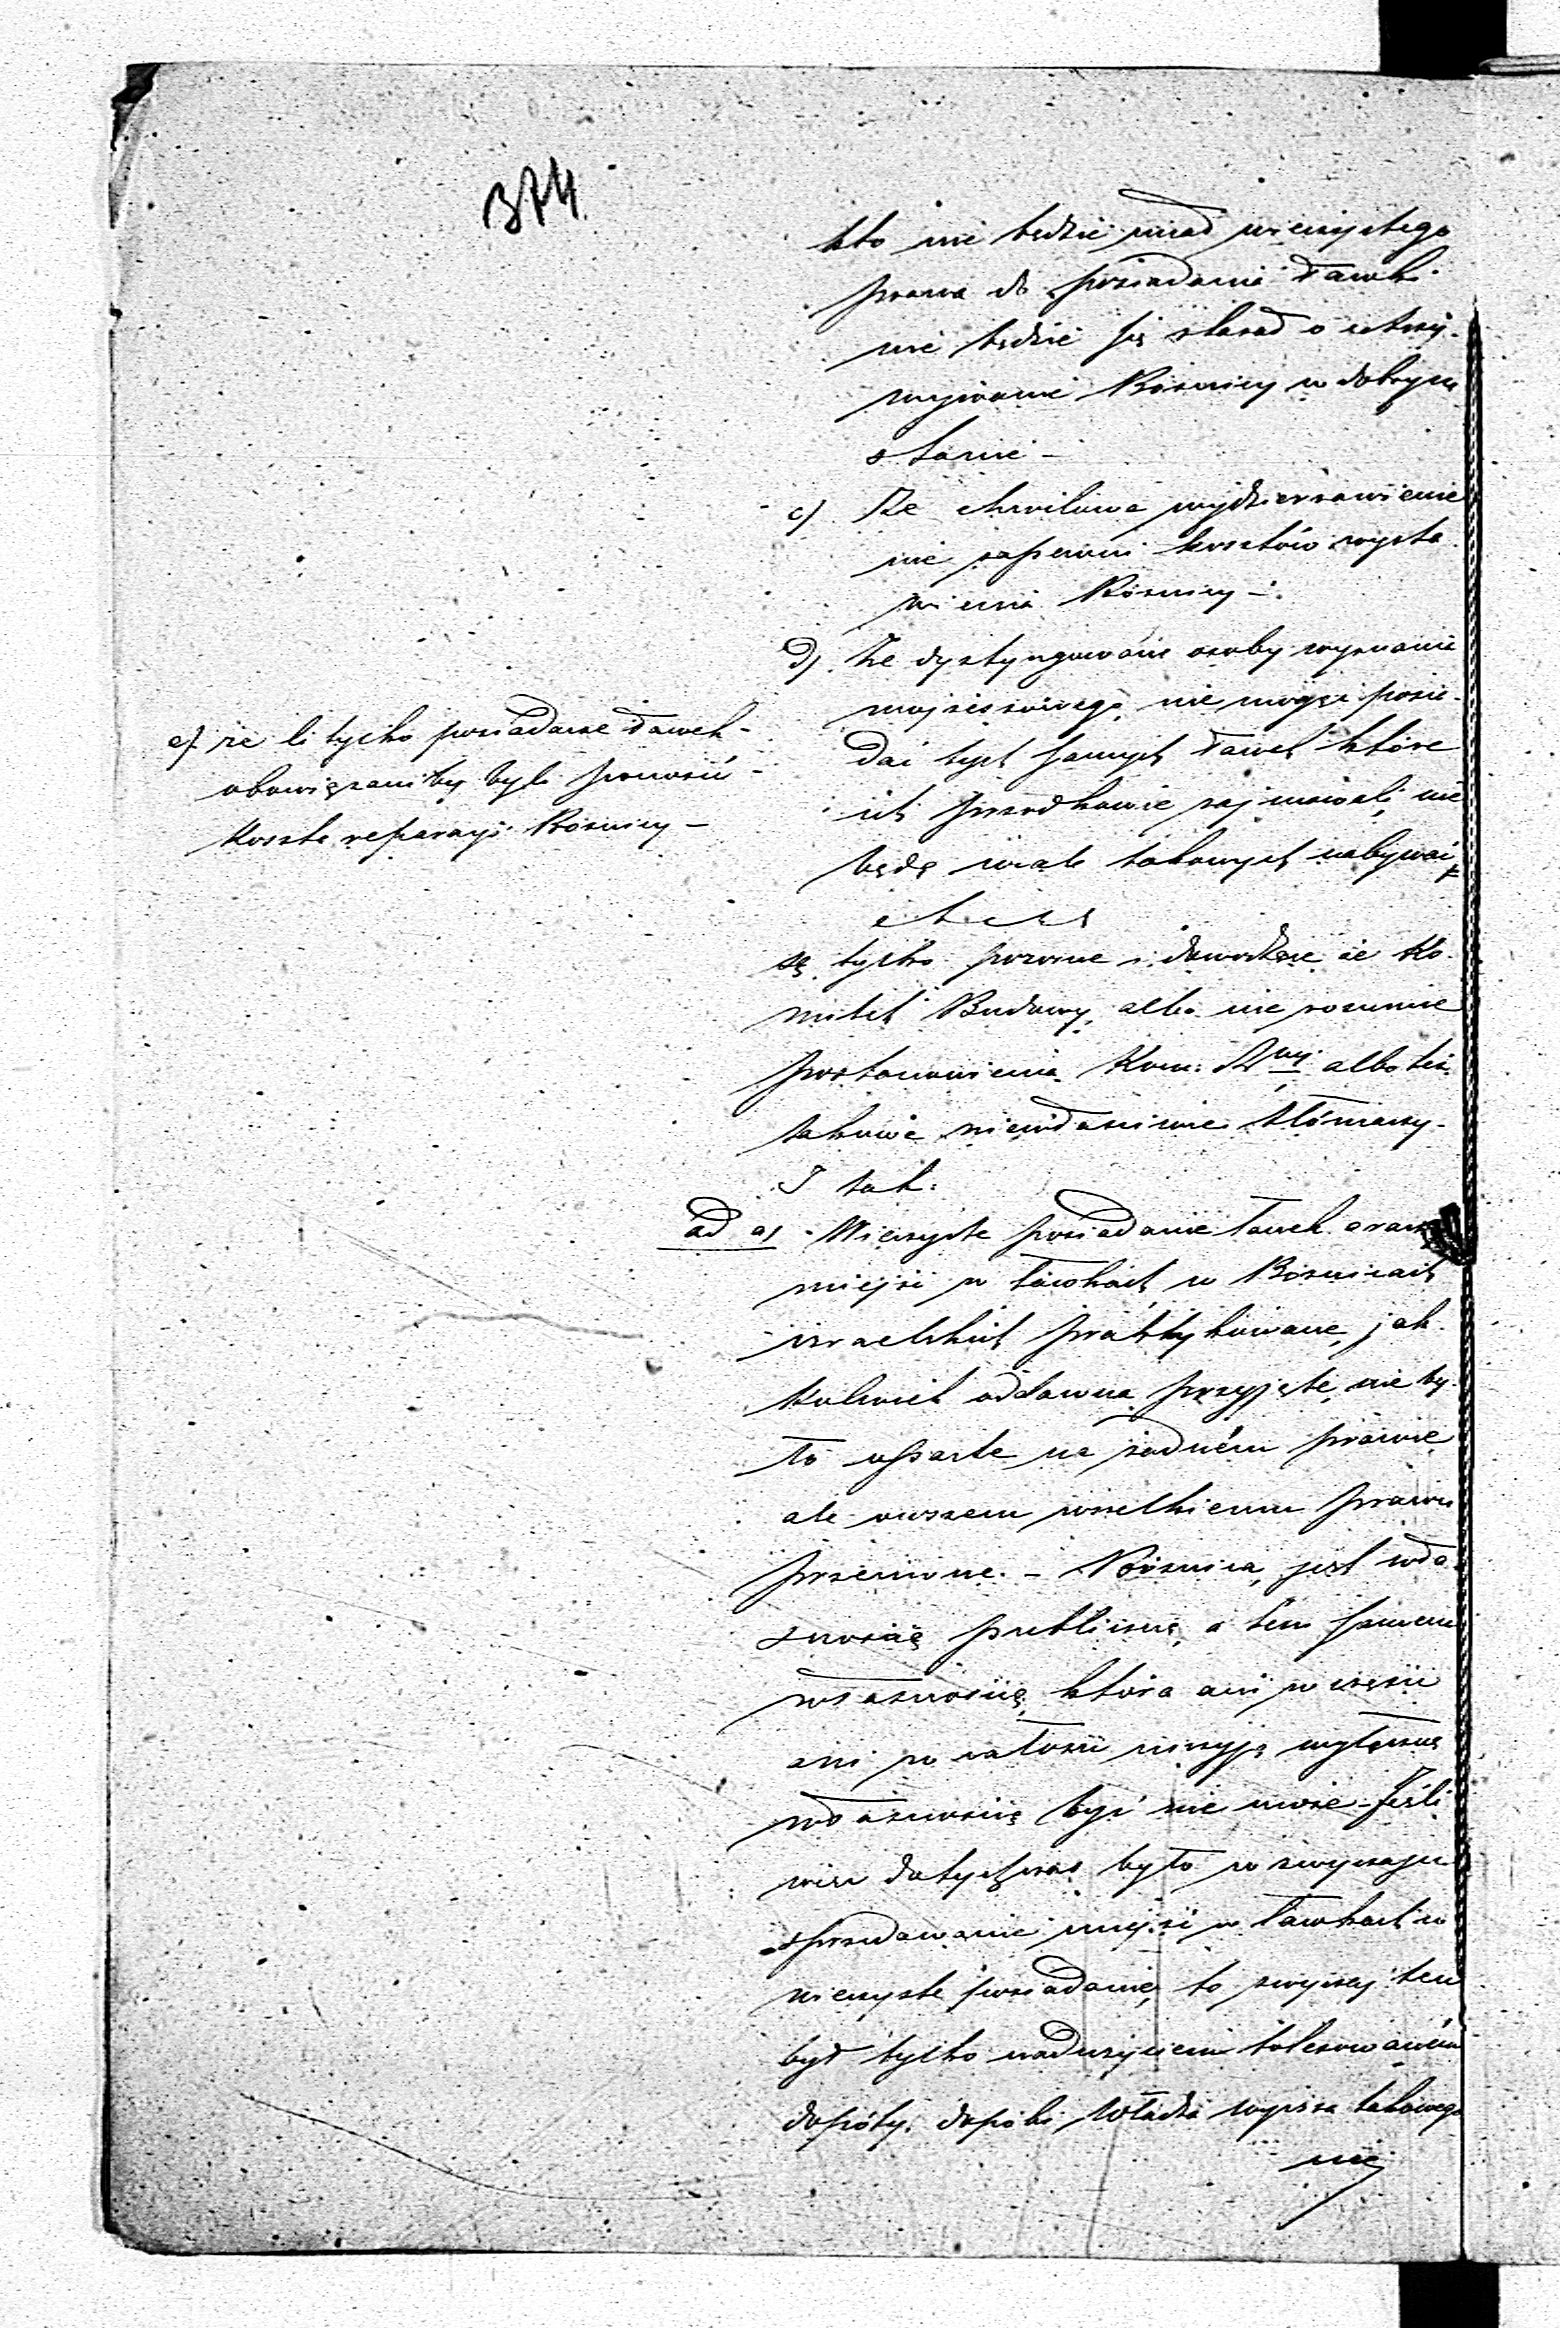 374
kto nie będzie miał wieczystego
prawa do posiadania ławki
nie będzie się starał o utrzy-
mywanie Bóżnicy w dobrym
stanie –
c) Że chwilowe wydzierżawienie
nie zapewni kosztów wysta-
wienia Bóżnicy –
d) Że dystyngowane osoby wyznania
mojżeszowego, nie mogąc posia-
dać tych samych ławek które
ich przodkowie zajmowali, nie
będą wcale takowych nabywać,
e) że li tylko posiadacze ławek –
obowiązani by byli ponosić –
koszta reparacyi Bóżnicy –
są tylko pozorne i dowodzą że Ko-
mitet Budowy, albo nie rozumie
postanowienia Kom: Rz albo też
takowe niewłaściwie tłómaczy –
I tak:
ad a) – Wieczyste posiadanie ławek oraz
miejsc w ławkach, w Bóżnicach
izraelskich praktykowane, jak-
kolwiek oddawna przyjęte, nie by-
ło oparte na żadném prawie
ale owszem wszelkiemu prawu
przeciwne. – Bóżnica, jest wła-
snością publiczną, a tém samem
własnością, która ani w części
ani w całości niczyją wyłączną
własnością być nie może – Jeśli
więc dotychczas było w zwyczaju
sprzedawanie miejsc w ławkach w
wieczyste posiadanie, to zwyczaj ten
był tylko nadużyciem tolerowaném
dopóty, dopóki Władza wyższa takowego
nie